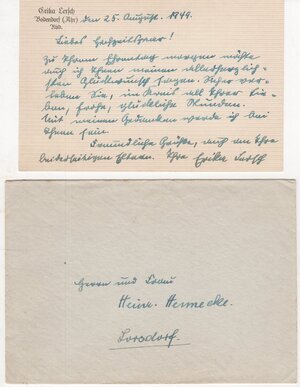 Erika Lersch
Bodendorf (Ahr)
den 25. August. 1949.
Liebes Hochzeitspaar!
Zu Ihrem Ehrentag morgen möchte
auch ich Ihnen meinen allerherzlich-
sten Glückwunsch sagen. Sicher ver-
leben Sie, im Kreis all Ihrer Lie-
ben, frohe, glückliche Stunden.
Mit meinen Gedanken werde ich bei
Ihnen sein.
Freundliche Grüße, auch an Ihre
beiderseitigen Eltern. Ihre Erika Lersch
Herrn und Frau
Heinr. Hermecke.
Lorsdorf.